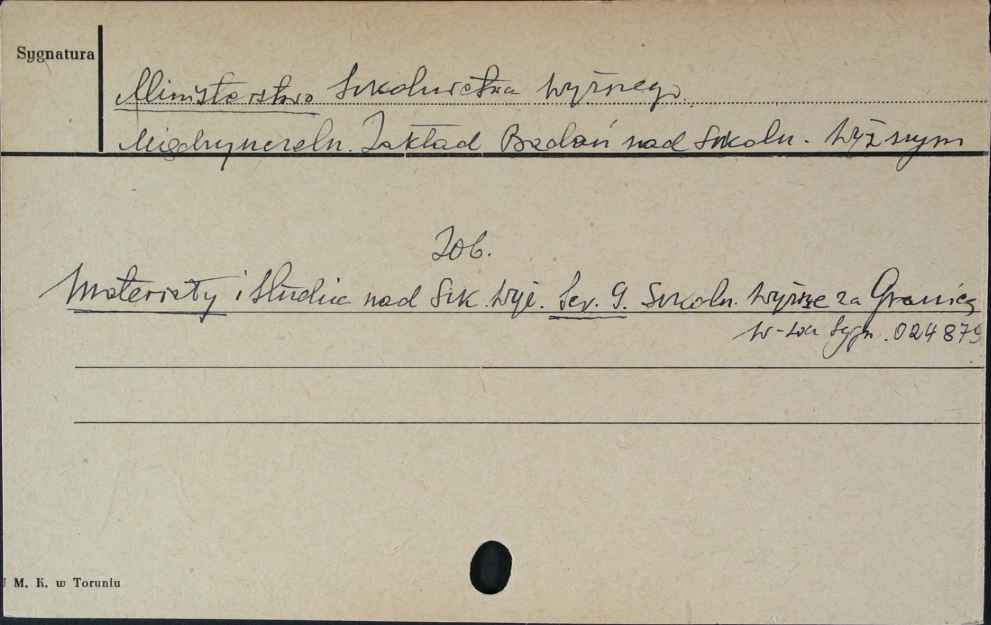 Sygnatura
Ministerstwo Szkolnictwa Wyższego
Międzyuczeln. Zakład Badań nad Szkoln. Wyższym
Zob.
Materiały i Studia nad Szk. Wyż. Ser. G. Szkoln. Wyższe za Granicą
W-wa Sygn. 024879
M. K. w Toruniu